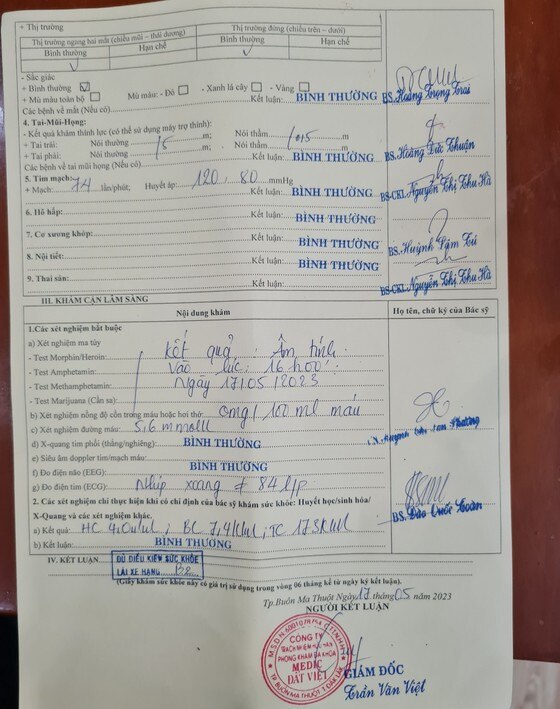 + Thị trường
Thị trường ngang hai mắt (chiều mũi – thái dương) Thị trường đứng (chiều trên – dưới)
Bình thường Hạn chế Bình thường Hạn chế
- Sắc giác
+ Bình thường
+ Mù màu toàn bộ Mù màu: - Đỏ - Xanh lá cây - Vàng
Các bệnh về mắt (Nếu có) Kết luận: BÌNH THƯỜNG BS. Hoàng Trọng Trai
4. Tai-Mũi-Họng:
- Kết quả khám thính lực (có thể sử dụng máy trợ thính):
+ Tai trái: Nói thường m; Nói thầm m;
+ Tai phải: Nói thường 5 m; Nói thầm 0,5 m;
Các bệnh về tai mũi họng (Nếu có) Kết luận: BÌNH THƯỜNG BS. Hoàng Đức Thuận
5. Tim mạch:
+ Mạch: 74 lần/phút; Huyết áp: 120 / 80 mmHg
Kết luận: BÌNH THƯỜNG BS-CKI. Nguyễn Thị Thu Hà
6. Hô hấp:
Kết luận: BÌNH THƯỜNG
7. Cơ xương khớp:
Kết luận: BÌNH THƯỜNG BS. Huỳnh Lâm Tú
8. Nội tiết:
Kết luận: BÌNH THƯỜNG
9. Thai sản: BS-CKI. Nguyễn Thị Thu Hà
Kết luận: BÌNH THƯỜNG
III. KHÁM CẬN LÂM SÀNG
Nội dung khám Họ tên, chữ ký của Bác sỹ
1.Các xét nghiệm bắt buộc
a) Xét nghiệm ma túy
- Test Morphin/Heroin: Kết quả: Âm tính
- Test Amphetamin: Vào lúc: 16h00'
- Test Methamphetamin: Ngày 17/05/2023
- Test Marijuana (Cần sa):
b) Xét nghiệm nồng độ cồn trong máu hoặc hơi thở: 0mg/100 ml máu
c) Xét nghiệm đường máu: 5,6 mmol/l
d) X-quang tim phổi (thẳng/nghiêng): BÌNH THƯỜNG
e) Siêu âm doppler tim/mạch máu:
f) Đo điện não (EEG) BÌNH THƯỜNG
g) Đo điện tim (ECG): Nhịp xoang # 84 l/p
2. Các xét nghiệm chỉ thực hiện khi có chỉ định của bác sỹ khám sức khỏe: Huyết học/sinh hóa/
X-Quang và các xét nghiệm khác. BS. Đào Quốc Toàn
a) Kết quả: HC BC TC
b) Kết luận: BÌNH THƯỜNG
IV. KẾT LUẬN ĐỦ ĐIỀU KIỆN SỨC KHỎE
LÁI XE HẠNG B2
(Giấy khám sức khỏe này có giá trị sử dụng trong vòng 06 tháng kể từ ngày ký kết luận).
Tp.Buôn Ma Thuột Ngày 17 tháng 05 năm 2023
NGƯỜI KẾT LUẬN
CÔNG TY
TRÁCH NHIỆM HỮU HẠN
PHÒNG KHÁM ĐA KHOA
MEDIC
ĐẤT VIỆT
GIÁM ĐỐC
Trần Văn Việt